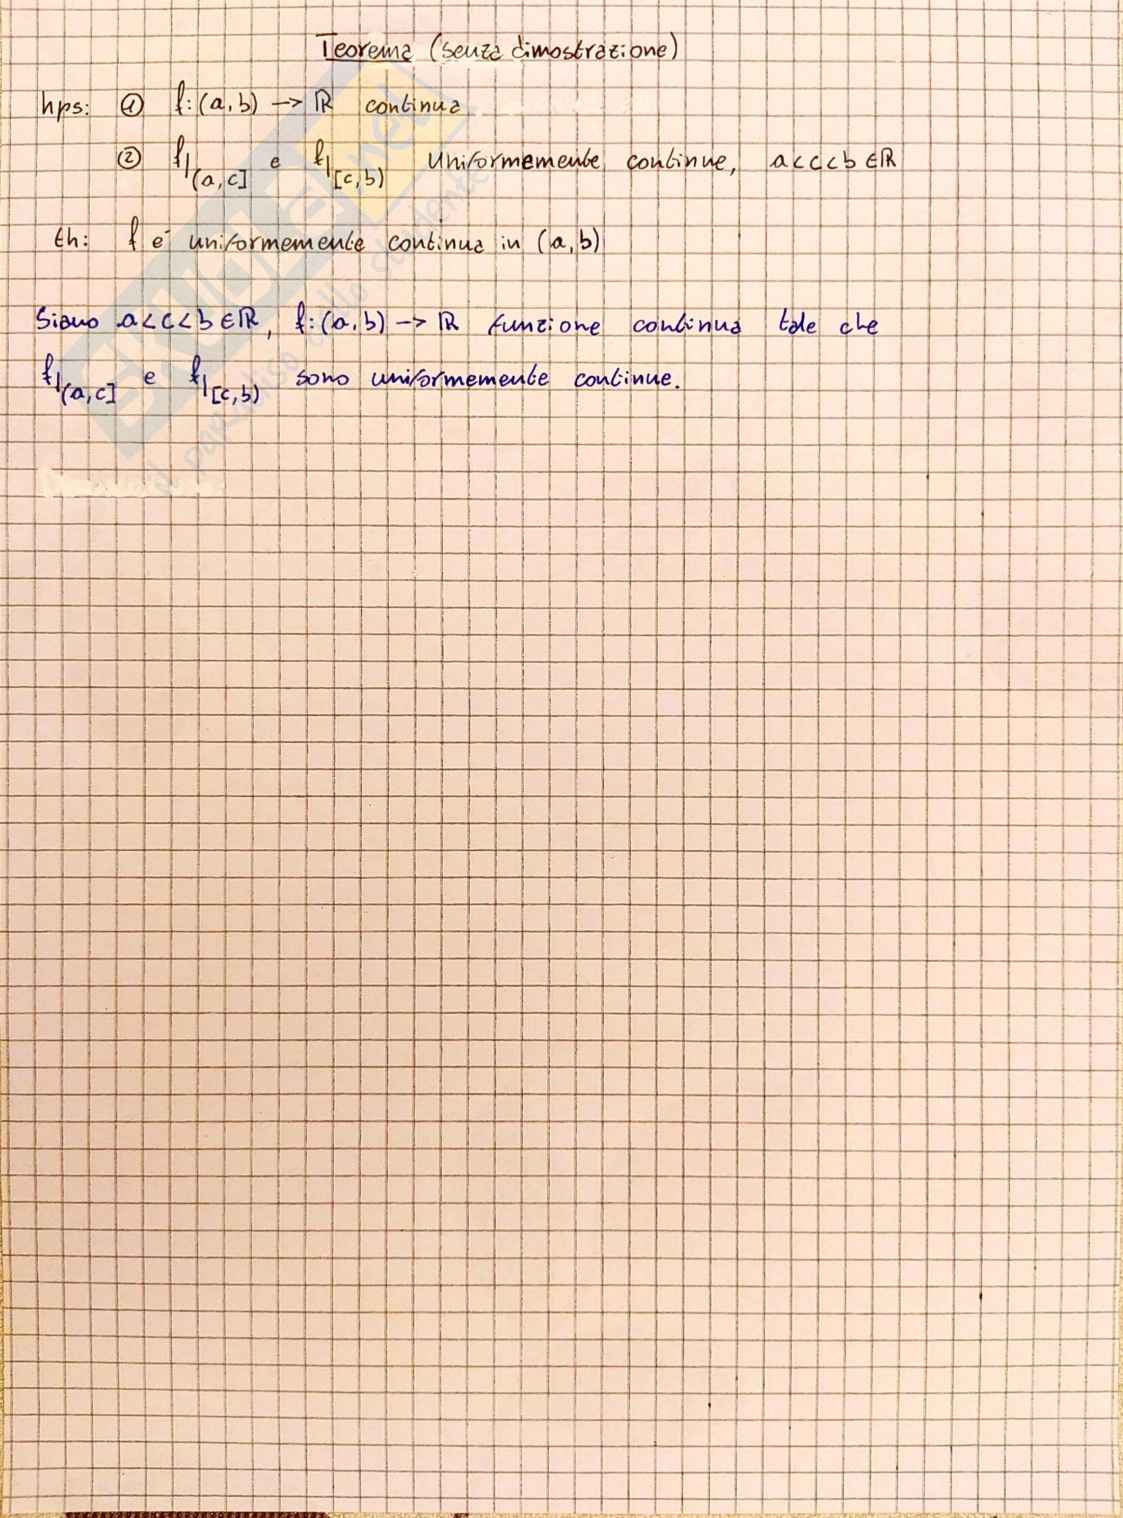 Teorema (senza dimostrazione)
hps: ① f:(a,b) → ℝ continua
② f|(a,c] e f|[c,b) uniformemente continue, a<c<b ∈ ℝ
th: f e' uniformemente continua in (a,b)
Siano a<c<b ∈ ℝ, f:(a,b) → ℝ funzione continua tale che
f|(a,c] e f|[c,b) sono uniformemente continue.